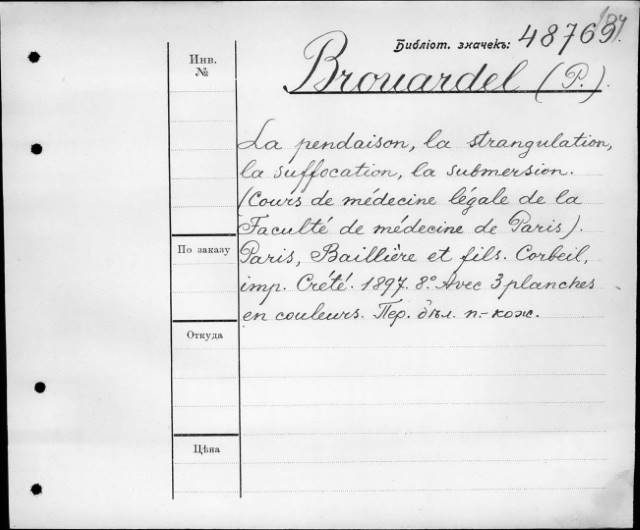 Библіот. значекъ: 48769.
Инв.
№
Brouardel (P.).
La pendaison, la strangulation,
la suffocation, la submersion.
(Cours de médecine légale de la
Faculté de médecine de Paris).
По заказу
Paris, Baillière et fils. Corbeil,
imp. Crété. 1897. 8º. Avec 3 planches
en couleurs. Пер. дѣл. п.-кож.
Откуда
Цѣна